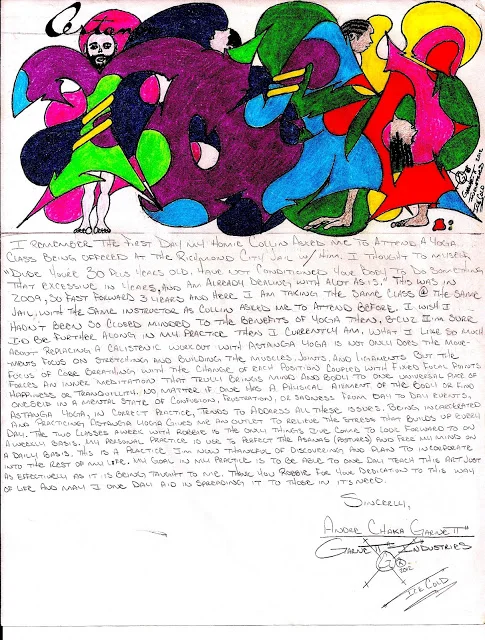 I remember the first day my homie Collin asked me to attend a yoga
class being offered at the Richmond City Jail w/ him. I thought to myself,
"Dude you're 30 plus years old, have not conditioned your body to do something
that excessive in years, and am already dealing with alot as is," This was in
2009, so fast forward 3 years and here I am taking the same class @ the same
jail, with the same instructor as Collin asked me to attend before. I wish I
hadn't been so closed minded to the benefits of yoga then, b/cuz I'm sure
I'd be further along in my practice then I currently am. What I like so much
about replacing a calistenic workout with Astanga yoga is not only does the move-
ments focus on stretching and building the muscles, joints, and ligaments but the
focus of core breathing with the change of each position coupled with fixed focal points.
Forces an inner meditation that truli brings mind and body into one universal path of
happiness or tranquillity. No matter if one has a phisical ailment of the body or find
oneself in a mental state of confusion, frustration, or sadness from day to day events,
Astanga yoga, in correct practice, tends to address all these issues. Being incarcerated
and practicing Astanga yoga gives me an outlet to relieve the stress that builds up every
day. The two classes aweek with Robbie is the only things I've come to look forward to on
a weekly basis. My personal practice is use to perfect the asanas (postures) and free my mind on
a daily basis. This is a practice I'm now thankful of discovering and plan to incorporate
into the rest of my life. My goal in my practice is to be able to one day teach this art just
as effectively as it is being taught to me. Thank you Robbie for your dedication to this way
of life and may I one day aid in spreading it to those in its need.
Sincerly,
Andre Chaka Garnett
Garnett Industries
2012
Ice Cold
2012
Ice Cold